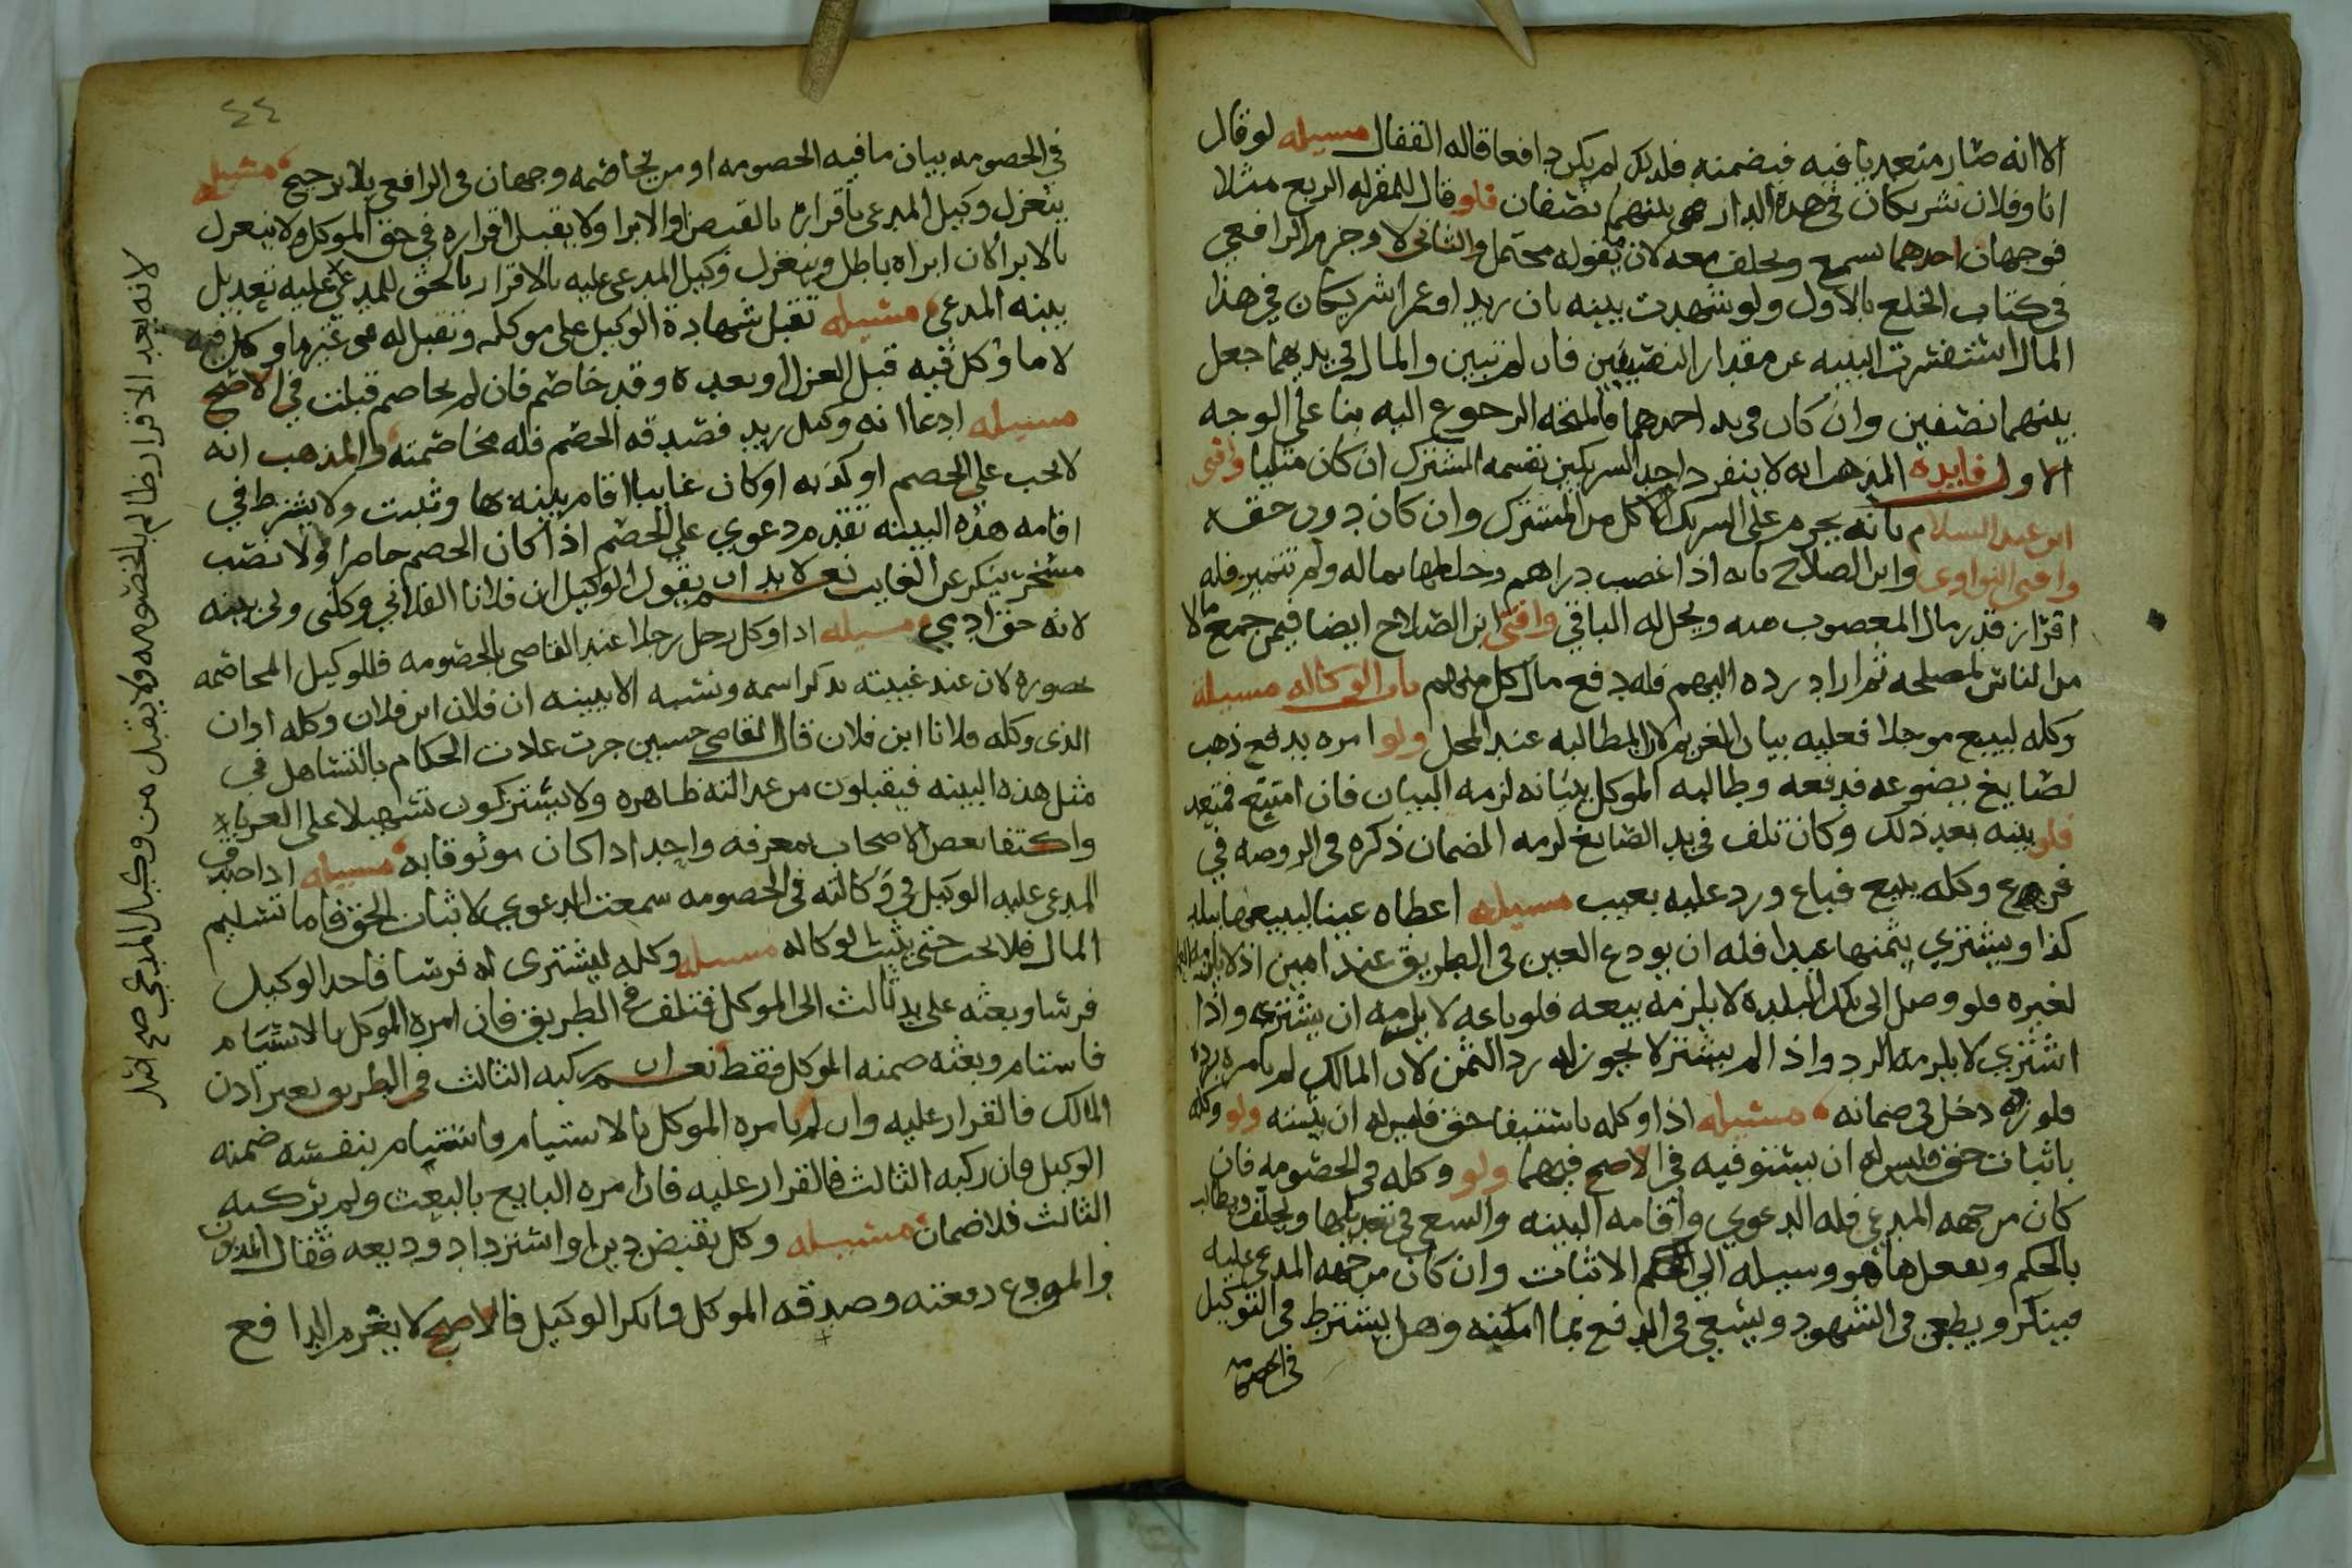 الا انه صار متعديا فيه فيضمنه فلذلك لم يكن دافعا قاله القفال مسيله لو قال
انا وفلان شريكان في هذه الدار هي بينهما نصفان فلو قال للمقر له الربع مثلا
فوجهان احدهما يسمع ويحلف معه لان ما يقوله محتمل والثاني لا وجزم الرافعي
في كتاب الخلع بالاول ولو شهدت بينه بان زيد او عمرا شريكان في هذا
المال استفسرت البينه عن مقدار النصيبين فان لم تبين والمال في يديهما جعل
بينهما نصفين وان كان في يد احدهما فالمتجه الرجوع اليه بنا على الوجه
الاول فايده المذهب انه لا ينفرد احد الشريكين بقسمه المشترك ان كان مثليا وافتى
ابن عبد السلام بانه يحرم على الشريك الاكل من المشترك وان كان دون حقه
وافتى النواوي وابن الصلاح بانه اذا غصب دراهم وخلطها بماله ولم تتميز فله
افراز قدر مال المغصوب منه ويحل له الباقي وافتى ابن الصلاح ايضا فيمن جمع مالا
من الناس لمصلحه ثم اراد رده اليهم فله دفع مال كل منهم باب الوكاله مسيلة
وكله لبيع موجلا فعليه بيان الغريم لان المطالبه عند المحل ولو امره بدفع ذهب
لصايغ يصوغه فدفعه وطالبه الموكل ببيانه لزمه البيان فان امتنع فمتعد
فلو بينه بعد ذلك وكان تلف في يد الصايغ لزمه الضمان ذكره في الروضه في
فرع وكله ببيع فباع ورد عليه بعيب مسيله اعطاه عينا ليبيعها ببلد
كذا ويشتري بثمنها عبدا فله ان يودع العين في الطريق عند امين اذ لا يلزمه
لغيره فلو وصل الى تلك البلده لا يلزمه بيعه فلو باعه لا يلزمه ان يشتري واذا
اشترى لا يلزمه الرد واذا لم يشتر لا يجوز له رد الثمن لان المالك لم يامره برده
فلو رده دخل في ضمانه مسيله اذا وكله باستيفا حق فليس له ان يثبته ولو وكله
باثبات حق فليس له ان يستوفيه في الاصح فيهما ولو وكله في الخصومه فان
كان من جهه المدعي فله الدعوي واقامه البينه والسعي في تعديلها ويحلف ويطالب
بالحكم ويفعل ما هو وسيله الي الحكم الاثبات وان كان من جهه المدعى عليه
فينكر ويطعن في الشهود ويسعي في الدفع بما امكنه وهل يشترط في التوكيل
في الخصومه
٤٤
في الخصومه بيان ما فيه الخصومه او من يخاصمه وجهان في الرافعي بلا ترجيح مسيله
ينعزل وكيل المدعى باقراره بالقبض او الابرا ولا يقبل اقراره في حق الموكل ولا ينعزل
بالابرا لان ابراه باطل وينعزل وكيل المدعى عليه بالاقرار بالحق للمدعي عليه تعديل
بينه المدعي مسيله تقبل شهادة الوكيل على موكله وتقبل له في غير ما وكل فيه
لا ما وكل فيه قبل العزل او بعده وقد خاصم فان لم يخاصم قبلت في الاصح
مسيله ادعا انه وكيل زيد فصدقه الخصم فله مخاصمته والمذهب انه
لا يجب على الخصم او كذبه او كان غايبا اقام بينه بها وثبتت ولا يشترط في
اقامه هذه البينه تقدم دعوي علي الخصم اذا كان الخصم حاضرا ولا نصب
مسخر ينكر عن الغايب نعم لا بد ان يقول الوكيل ان فلانا الفلاني وكلني ولي بينه
لانه حق ادمي مسيله اذا وكل رجل رجلا عند القاضي بالخصومه فللوكيل المخاصمه
بحضوره لان عند غيبته يذكر اسمه ونسبه الا ببينه ان فلان ابن فلان وكله او ان
الذي وكله فلانا ابن فلان قال القاضي حسين جرت عادت الحكام بالتساهل في
مثل هذه البينه فيقبلون من عدالته ظاهره ولا يستزكون تسهيلا على الغرباء
واكتفا بعض الاصحاب بمعرفه واحد اذا كان موثوقا به مسيله اذا صدق
المدعى عليه الوكيل في وكالته في الخصومه سمعت الدعوي لاثبات الحق فاما تسليم
المال فلا يجب حتى يثبت الوكاله مسيله وكله ليشتري له فرسا فاخذ الوكيل
فرسا وبعثه على يد ثالث الى الموكل فتلف في الطريق فان امره الموكل بالاستيام
فاستام وبعثه ضمنه الموكل فقط نعم ان ركبه الثالث في الطريق بغير اذن
المالك فالقرار عليه وان لم يامره الموكل بالاستيام فاستام بنفسه ضمنه
الوكيل فان ركبه الثالث فالقرار عليه فان امره البايع بالبعث ولم يركبه
الثالث فلا ضمان مسيله وكل بقبض دين او استرداد وديعه فقال المديون
والمودع دفعته وصدقه الموكل وانكر الوكيل فالاصح لا يغرم الدافع
لانه بعد الاقرار ظالم بالخصومه ولا يقبل من وكيل المدعي صح اصل